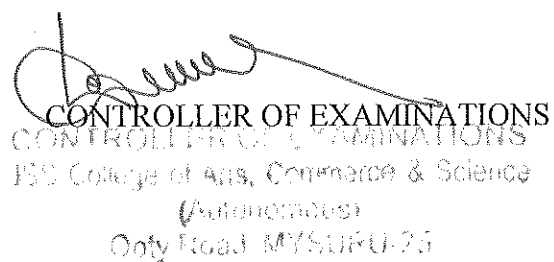 CONTROLLER OF EXAMINATIONS
CONTROLLER OF EXAMINATIONS
JSS College of Arts, Commerce & Science
(Autonomous)
Ooty Road MYSURU-25